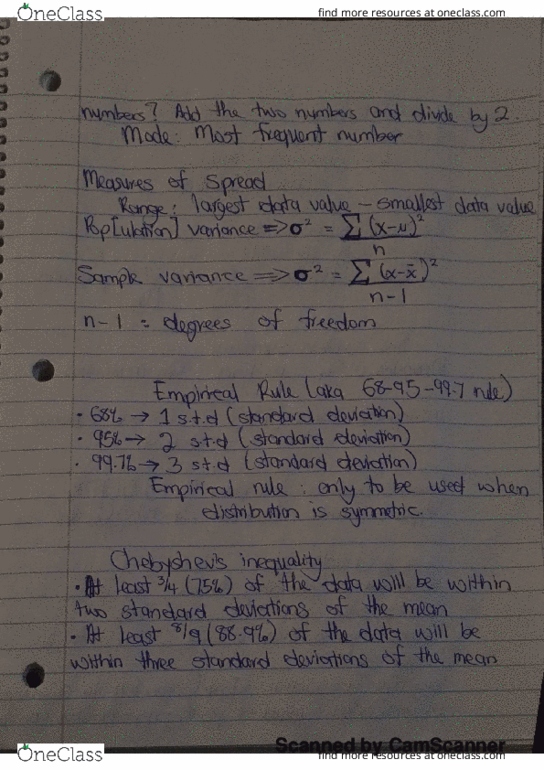 OneClass
find more resources at oneclass.com
numbers? Add the two numbers and divide by 2.
Mode: Most frequent number
Measures of Spread
Range: largest data value - smallest data value
Pop[ulation] variance => σ² = Σ (x-μ)²
n
Sample variance => σ² = Σ (x-x̄)²
n-1
n-1 = degrees of freedom
Empirical Rule (aka 68-95-99.7 rule)
• 68% → 1 s.t.d (standard deviation)
• 95% → 2 s.t.d (standard deviation)
• 99.7% → 3 s.t.d (standard deviation)
Empirical rule: only to be used when
distribution is symmetric.
Chebyshev's inequality
• At least 3/4 (75%) of the data will be within
two standard deviations of the mean
• At least 8/9 (88.9%) of the data will be
within three standard deviations of the mean
Scanned by CamScanner
OneClass
find more resources at oneclass.com